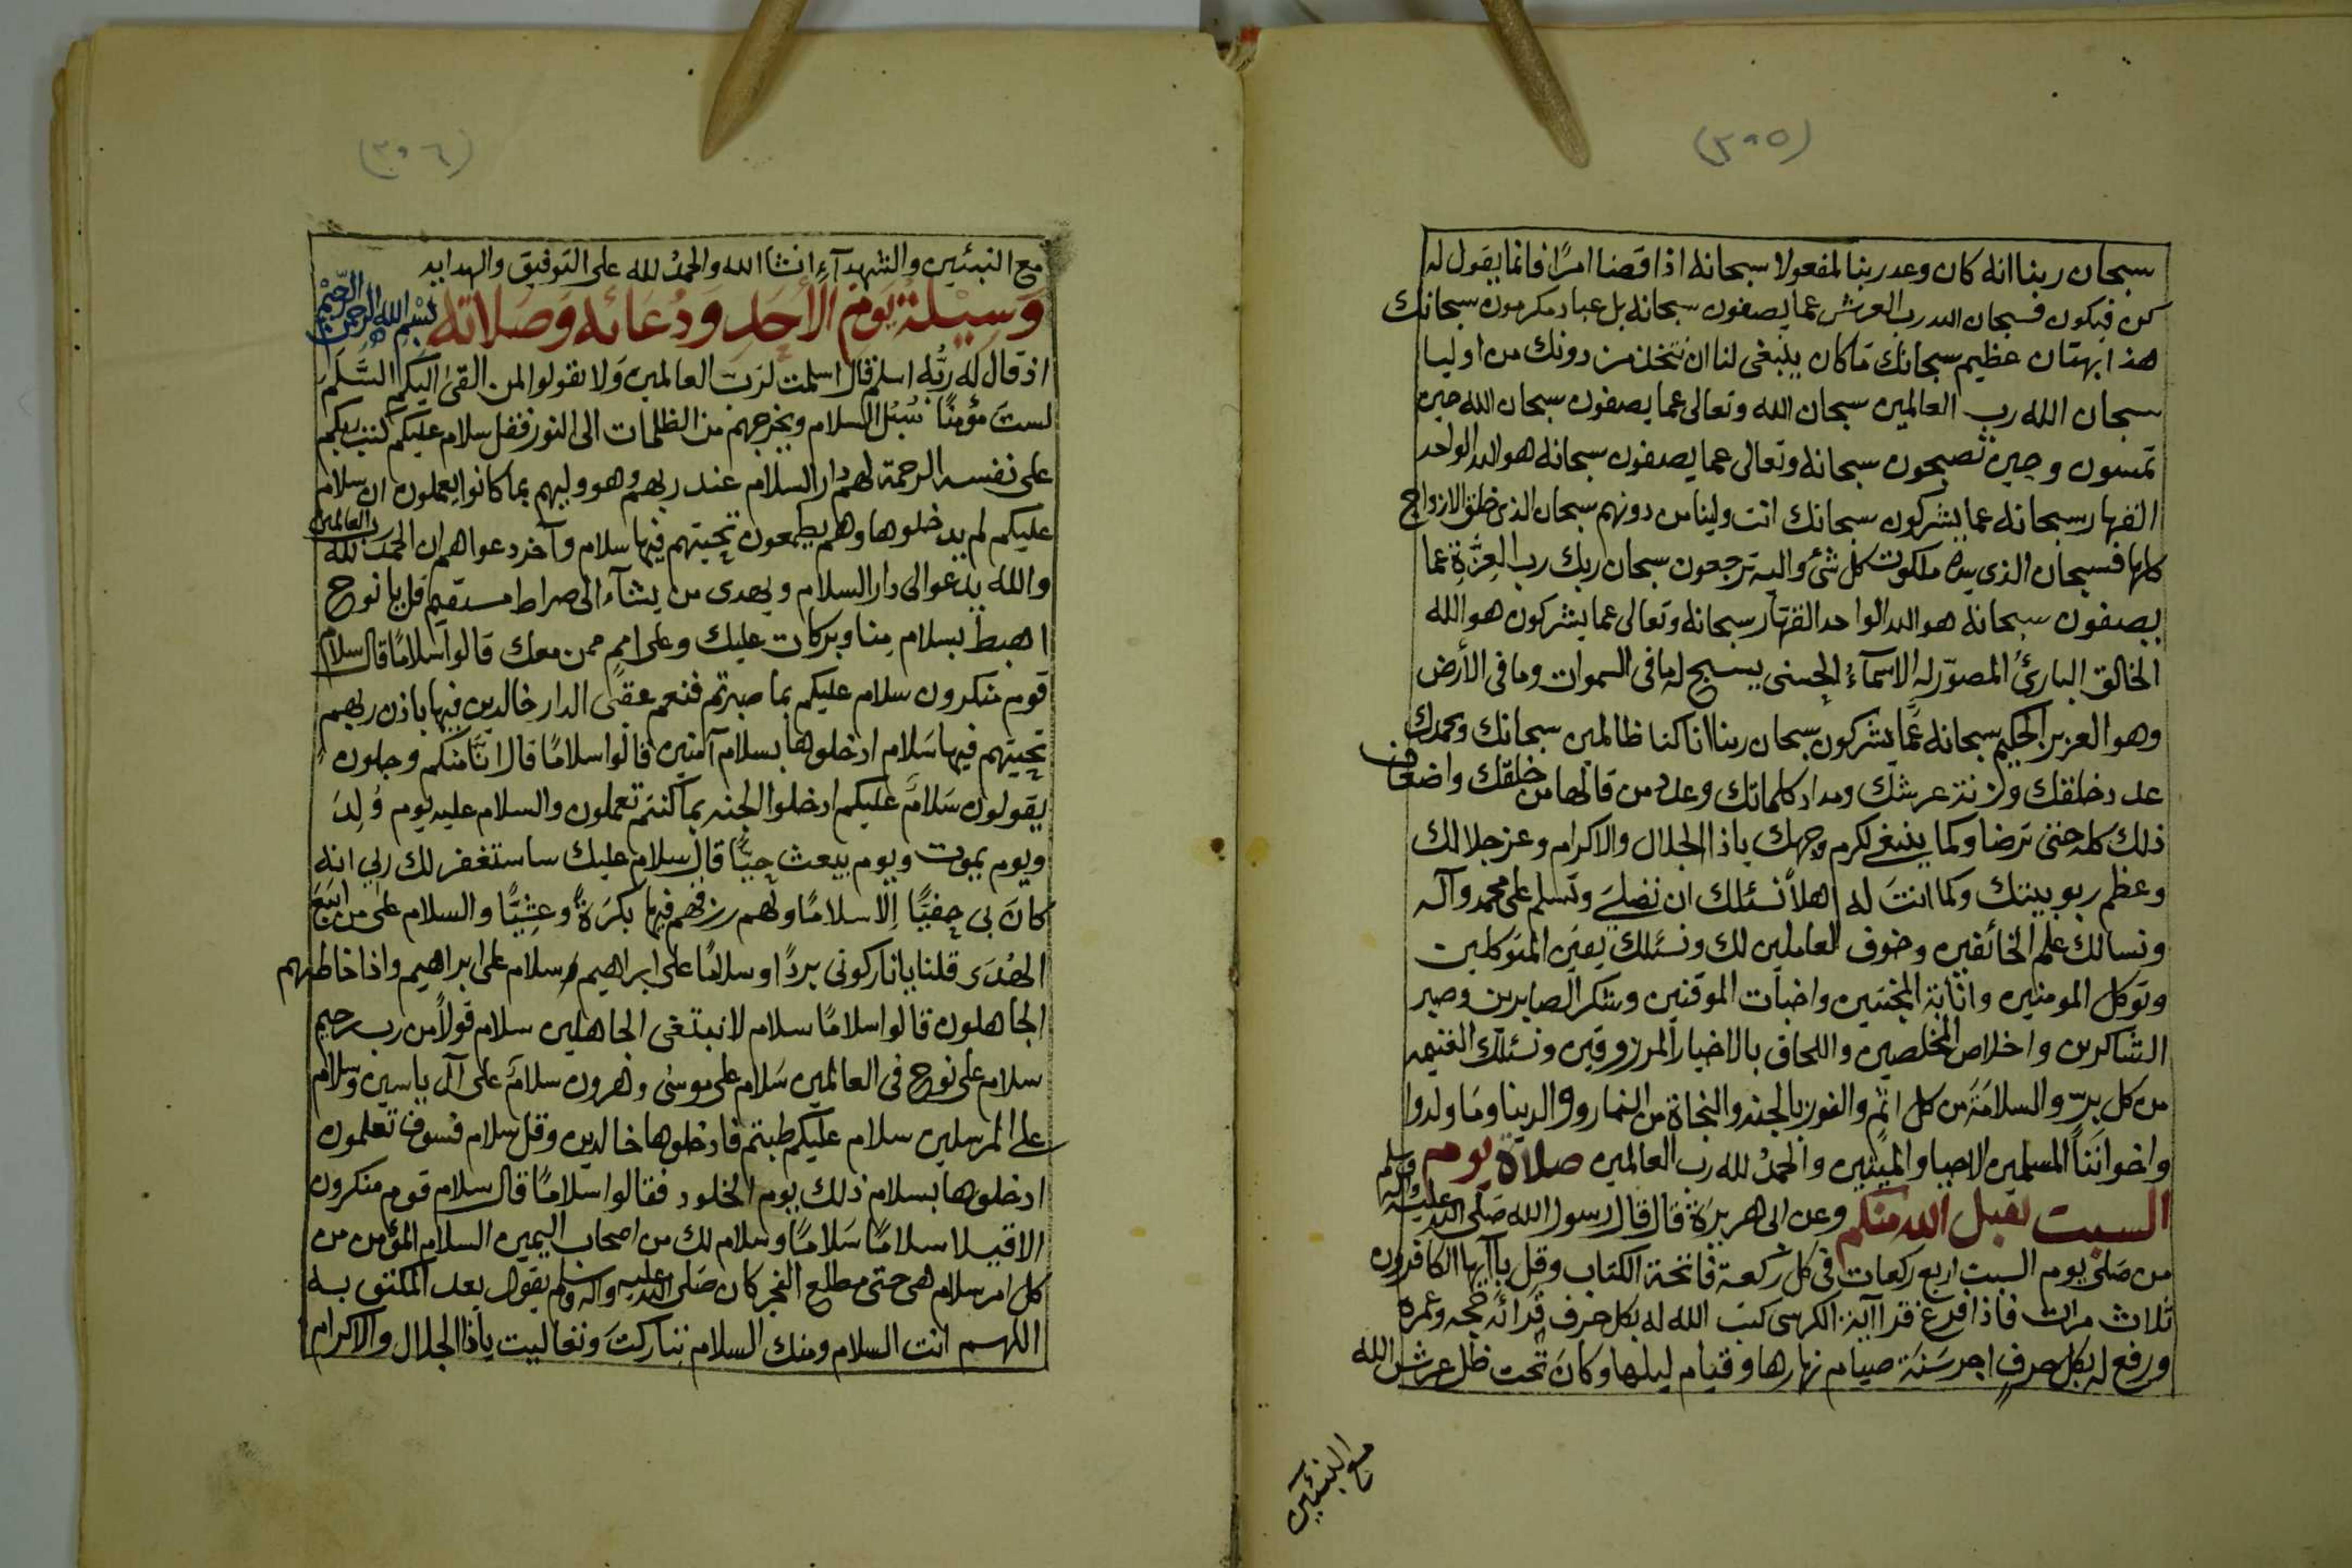 (٣٠٥)
سبحان ربنا انه كان وعد ربنا لمفعولا سبحانه اذا قضا امرًا فانما يقول له
كن فيكون فسبحان الله رب العرش عما يصفون سبحانه بل عباد مكرمون سبحانك
هذا بهتان عظيم سبحانك ما كان ينبغى لنا ان نتخذ من دونك من اوليا
سبحان الله رب العالمين سبحان الله وتعالى عما يصفون سبحان الله حين
تمسون وحين تصبحون سبحانه وتعالى عما يصفون سبحانه هو الله الواحد
القهار سبحانه عما يشركون سبحانك انت ولينا من دونهم سبحان الذى خلق الازواج
كلها فسبحان الذى بيده ملكوت كل شئ واليه ترجعون سبحان ربك رب العِزَّةِ عما
يصفون سبحانه هو الله الواحد القهار سبحانه وتعالى عما يشركون هو الله
الخالق البارئُ المصوّر له الاسمآءُ الحسنى يسبح له ما فى السموات وما فى الأرض
وهو العزيز الحكيم سبحانه عَمَّا يشركون سبحان ربنا انا كنا ظالمين سبحانك وبحمدك
عدد خلقك وزنة عرشك ومداد كلماتك وعدد من قالها من خلقك واضعاف
ذلك كله حتى ترضا وكما ينبغى لكرم وجهك ياذا الجلال والاكرام وعز جلالك
وعظم ربوبيتك وكما انتَ له اهلاً نسئلك ان تصلىَ وتسلم على محمد وآله
ونسالك علم الخائفين وخوف العاملين لك ونسئلك يقين المتوكلين
وتوكل المومنين وانابة المخبتين واخبات الموقنين وشكر الصابرين وصبر
الشاكرين واخلاص المخلصين واللحاق بالاخيار المرزوقين ونسئلك الغنيمه
من كل برّ والسلامَة من كل اثم والفوز بالجنه والنجاة من النار ووالدينا وما ولدوا
واخوانَنَا المسلمين الاحيا والميتين والحمدُ لله رب العالمين صلاة يوم
السبت تقبل الله منكم وعن ابى هريرة قال قال رسول الله صَلى الله عليه وآله وسلم
من صَلى يوم السبت اربع ركعات فى كل ركعة فاتحة الكتاب وقل ياآيها الكافرون
ثلاث مرات فاذا فرغ قرا آية الكرسى كتب الله له بكل حرف قرائه حجه وعمره
ورفع له بكل حرفٍ اجر سَنَة صيام نهارها وقيام ليلها وكانَ تحت ظل عرش الله
مع النبئين
(٣٠٦)
مع النبئين والشهدآءِ انشا الله والحمدُ لله على التوفيق والهدايه
وَسِيْلَةُ يَومِ الأَحَدِ وَدُعَائه وَصَلاته بسْمِ الله الرحمن الرَّحِيْمِ
اذ قال له ربُّه اسلم قال اسلمت لرَب العالمين وَلا تقولوا لمن القىٰ اليكم السَّلَمَ
لستَ مؤمنًا سُبُل السلام ويخرجهم من الظلمات الى النور فقل سلام عليكم كتب ربكم
على نفسه الرحمة لهم دار السلام عند ربهم وهو وليهم بما كانوا يعملون ان سلام
عليكم لم يدخلوها وهم يطمعون تحيتهم فيها سلام وآخر دعواهم ان الحمد لله رب العالمين
والله يدعو الى دار السلام ويهدى من يشآء الى صراط مستقيم قل يا نوح
اهبط بسلام منا وبركات عليك وعلى امم ممن معك قالوا سلامًا قال سلام
قوم منكرون سلام عليكم بما صبرتم فنعم عقبى الدار خالدين فيها باذن ربهم
تحيتهم فيها سَلام ادخلوها بسلام آمنين قالوا سلامًا قال انَّا منكم وجلون
يقولون سَلامٌ عليكم ادخلوا الجنه بما كنتم تعملون والسلام عليه يوم وُلِدَ
ويوم يموت ويوم يبعث حيًّا قال سلام عليك ساستغفر لك ربي انه
كانَ بى حفيًّا اِلّا سلامًا ولهم رزقهم فيها بكرَةً وعشِيًّا والسلام على من اتبَعَ
الهُدَى قلنا يا نار كونى بردًا وسلامًا على ابراهيم سلام على ابراهيم واذا خاطبهم
الجاهلون قالوا سلامًا سلام لا نبتغى الجاهلين سلام قولاً من رب رحيم
سلام على نوح فى العالمين سَلام على موسى وهرون سلامٌ على آل ياسين وسلام
على المرسلين سلام عليكم طبتم فادخلوها خالدين وقل سلام فسوف تعلمون
ادخلوها بسلام ذلك يوم الخلود فقالوا سلامًا قال سلام قوم منكرون
الا قيلا سلامًا سَلامًا وسلام لك من اصحاب اليمين السلام المؤمن من
كل امر سلام هى حتى مطلع الفجر كان صَلى الله عليه وآله وسلم يقول بعد المكتوبه
اللهم انت السلام ومنك السلام تباركتَ وتعاليت ياذا الجلال والاكرام